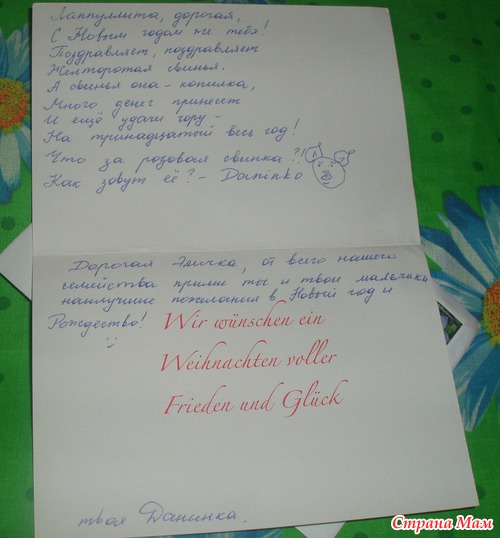 Лаппуллита, дорогая,
С Новым годом же тебя!
Поздравляет, поздравляет
Желторотая свинья.
А свинья она - копилка,
Много денег принесет
И ещё удачи гору -
На тринадцатый весь год!
Что за розовая свинка?!
Как зовут её? - Daninko
Дорогая Эличка, от всего нашего
семейства прими ты и твои мальчики
наилучшие пожелания в Новый год и
Рождество!
Wir wünschen ein
Weihnachten voller
Frieden und Glück
твоя Данинка.
Страна Мам